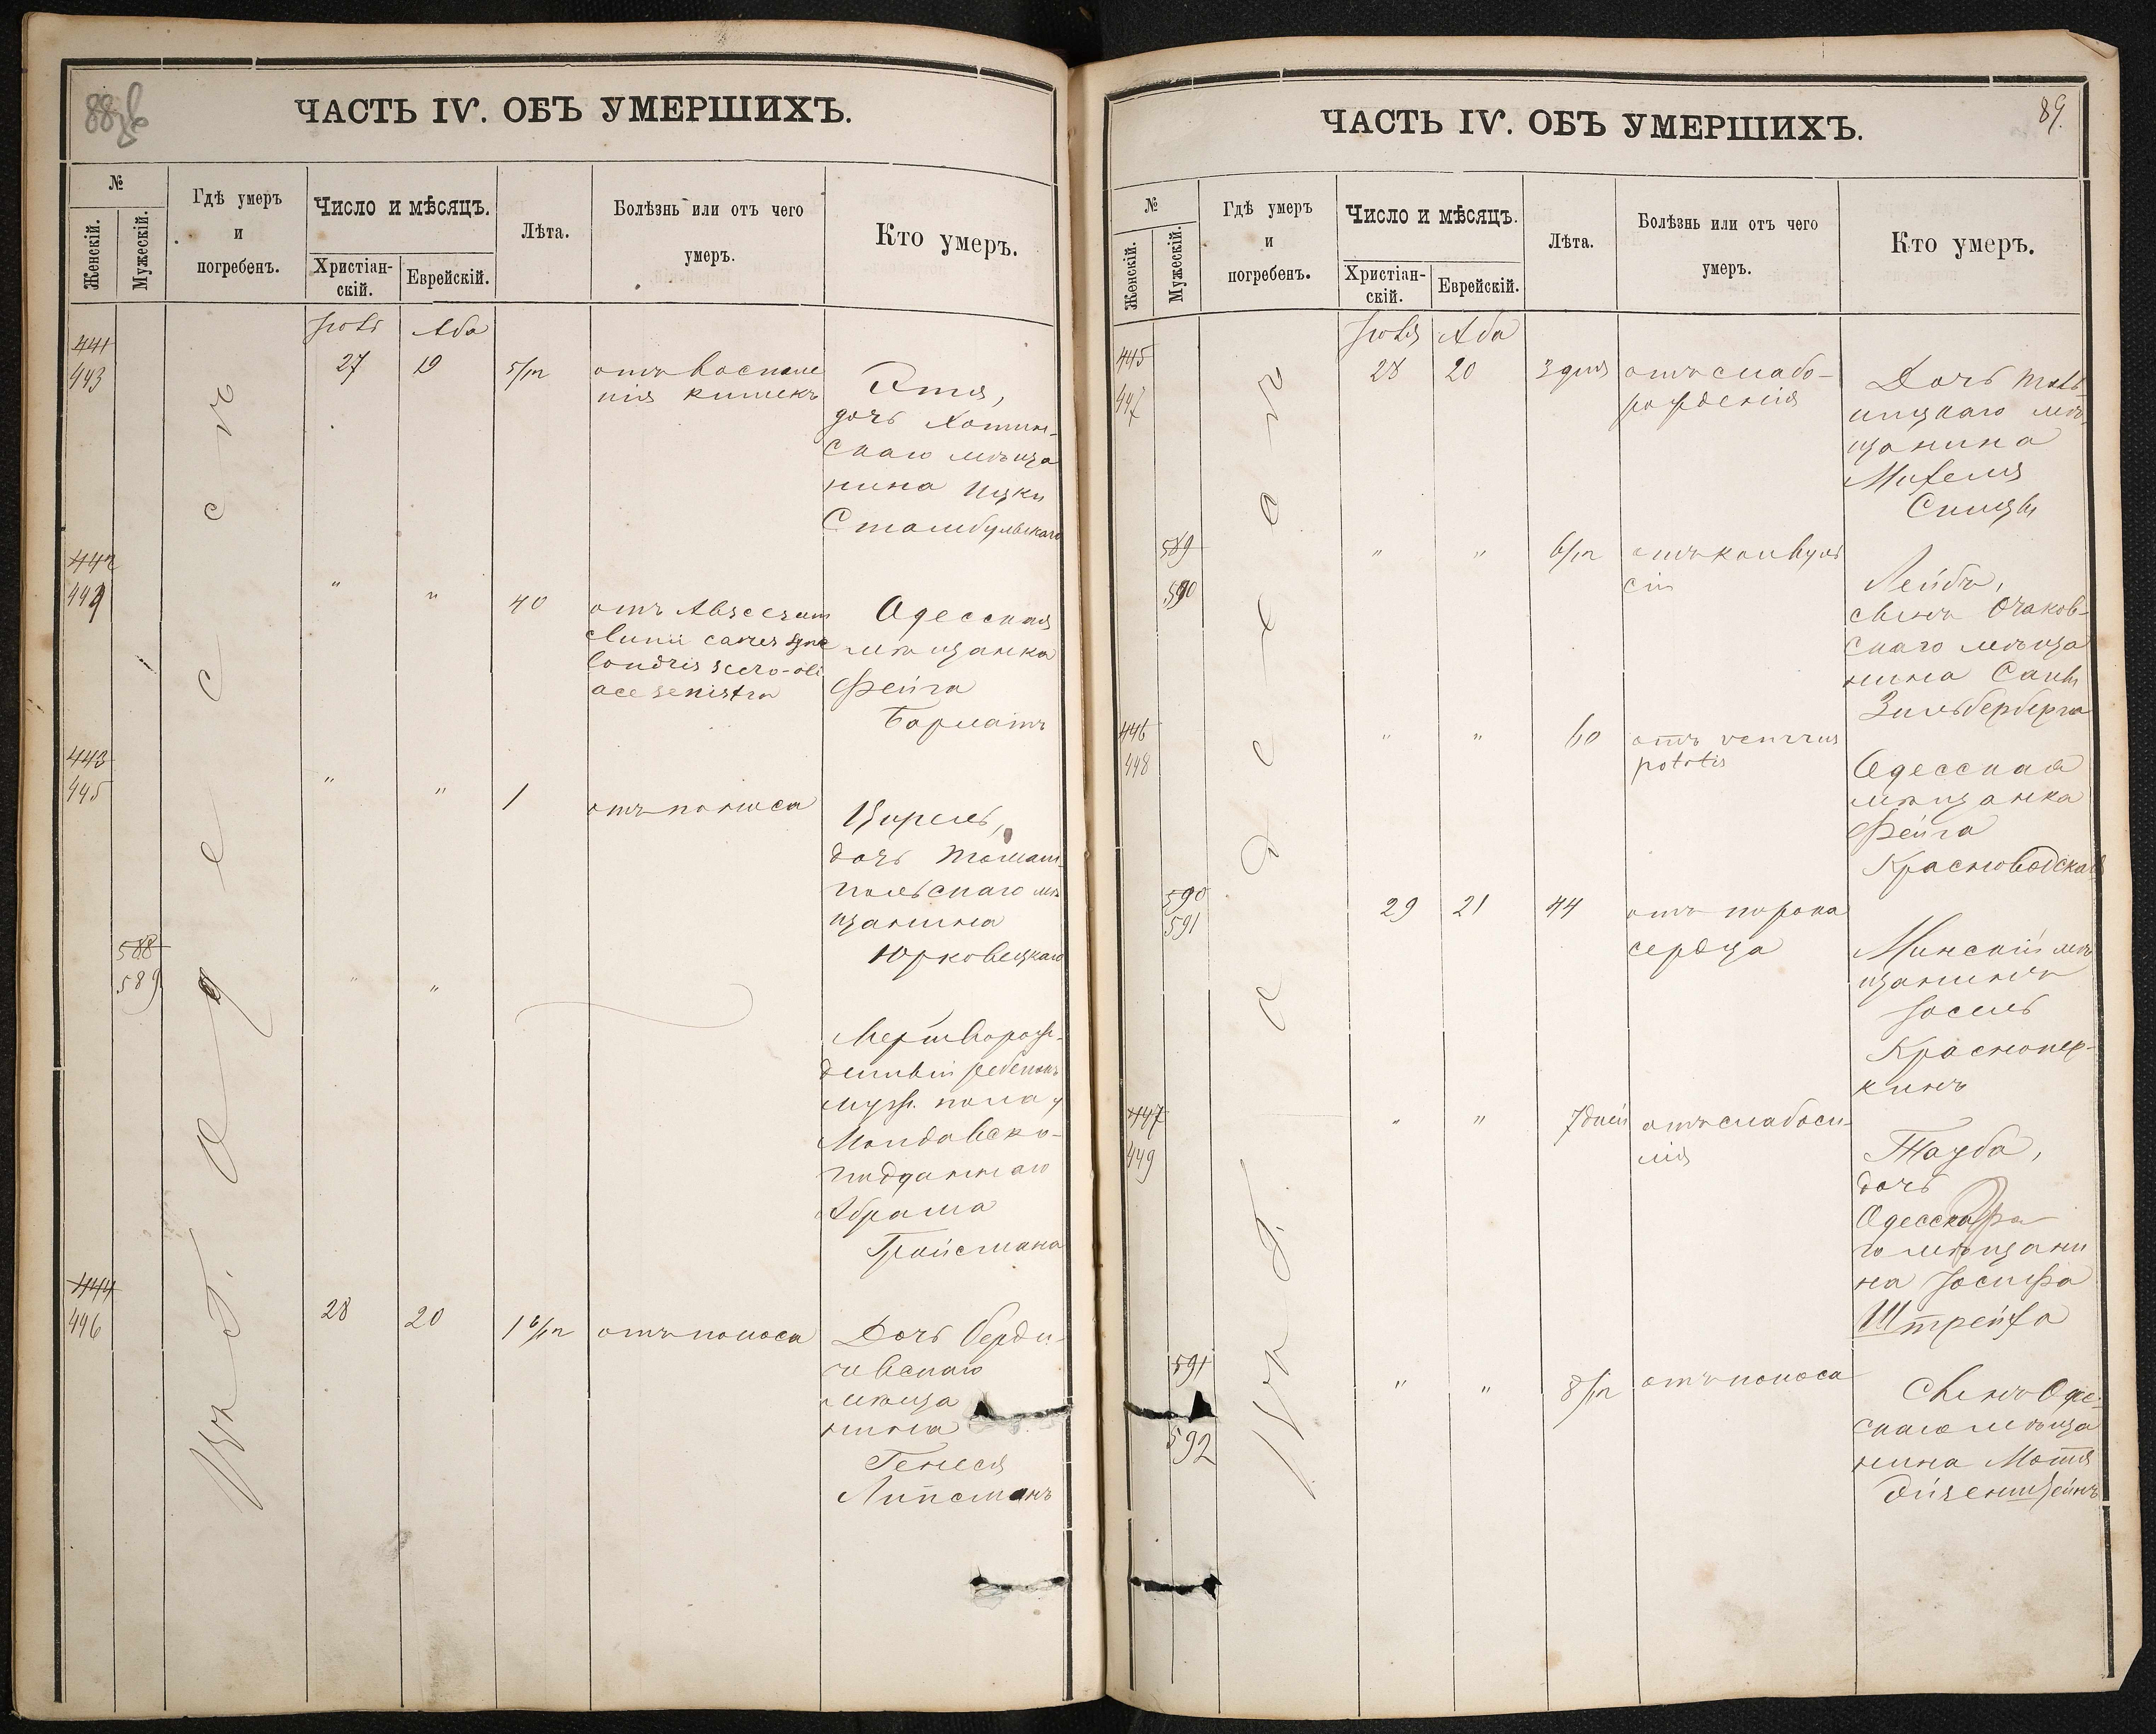 88
ЧАСТЬ IV. ОБЪ УМЕРШИХЪ.
№
Женскій.
Мужескій.
Гдѣ умеръ
и
погребенъ.
Число и мѣсяцъ.
Христіан-
скій.
Еврейскій.
Лѣта.
Болѣзнь или отъ чего
умеръ.
Кто умеръ.
Въ г. Одессѣ
Іюль Аба
441
443
27 19 5/12
отъ воспале
нія кишекъ
Этя,
дочь Хотин-
скаго мѣща
нина Ицки
Стамбульскаго
442
444
" " 40
отъ Abscesum
clunii caries syne
londris sacro-ili
ace senistra
Одесская
мѣщанка
Фейга
Барматъ
443
445
" " 1
отъ поноса
Цирель,
дочь Томаш-
польскаго мѣ
щанина
Юрковецкаго
588
589
" "
Мертворож-
денный ребенокъ
муж. пола у
Молдавско-
подданнаго
Абрама
Гройсмана
444
446
28 20 1 6/12
отъ поноса
Дочь Берди-
чевскаго
мѣща
нина
Генеся
Липсманъ
89.
ЧАСТЬ IV. ОБЪ УМЕРШИХЪ.
№
Женскій.
Мужескій.
Гдѣ умеръ
и
погребенъ.
Число и мѣсяцъ.
Христіан-
скій.
Еврейскій.
Лѣта.
Болѣзнь или отъ чего
умеръ.
Кто умеръ.
Въ г. Одессѣ
Іюля Аба
445
447
28 20 3 дня
отъ слабо-
рожденія
Дочь
мѣ
щанина
Михеля
Спицы
589
590
" " 6/12
отъ конвуль
сіи
Лейбъ,
сынъ Очаков-
скаго мѣща
нина
Зильберберга
446
448
" " 60
отъ
Одесская
мѣщанка
Фейга
Красноводская
590
591
29 21 44
отъ порока
сердца
Минскій мѣ
щанинъ
Іосель
Краснопер-
кинъ
447
449
" " 7 дней
отъ слабоси-
лія
Тауба,
дочь
Одесска
го мѣщани
на Іосифа
Штрейха
591
592
" " 8/12
отъ поноса
Сынъ Одес-
скаго мѣща
нина Мотя
Эйзенштейнъ